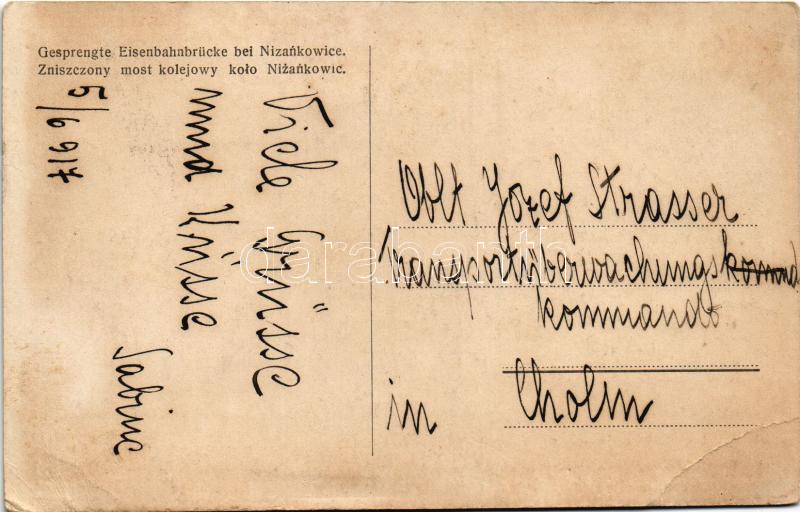 Gesprengte Eisenbahnbrücke bei Nizańkowice.
Zniszczony most kolejowy koło Niżańkowic.
5/6 917
Viele Grüsse
und Küsse
Sabine
Oblt Józef Strasser
Transportüberwachungskommand
kommando
in Cholm
darabanth